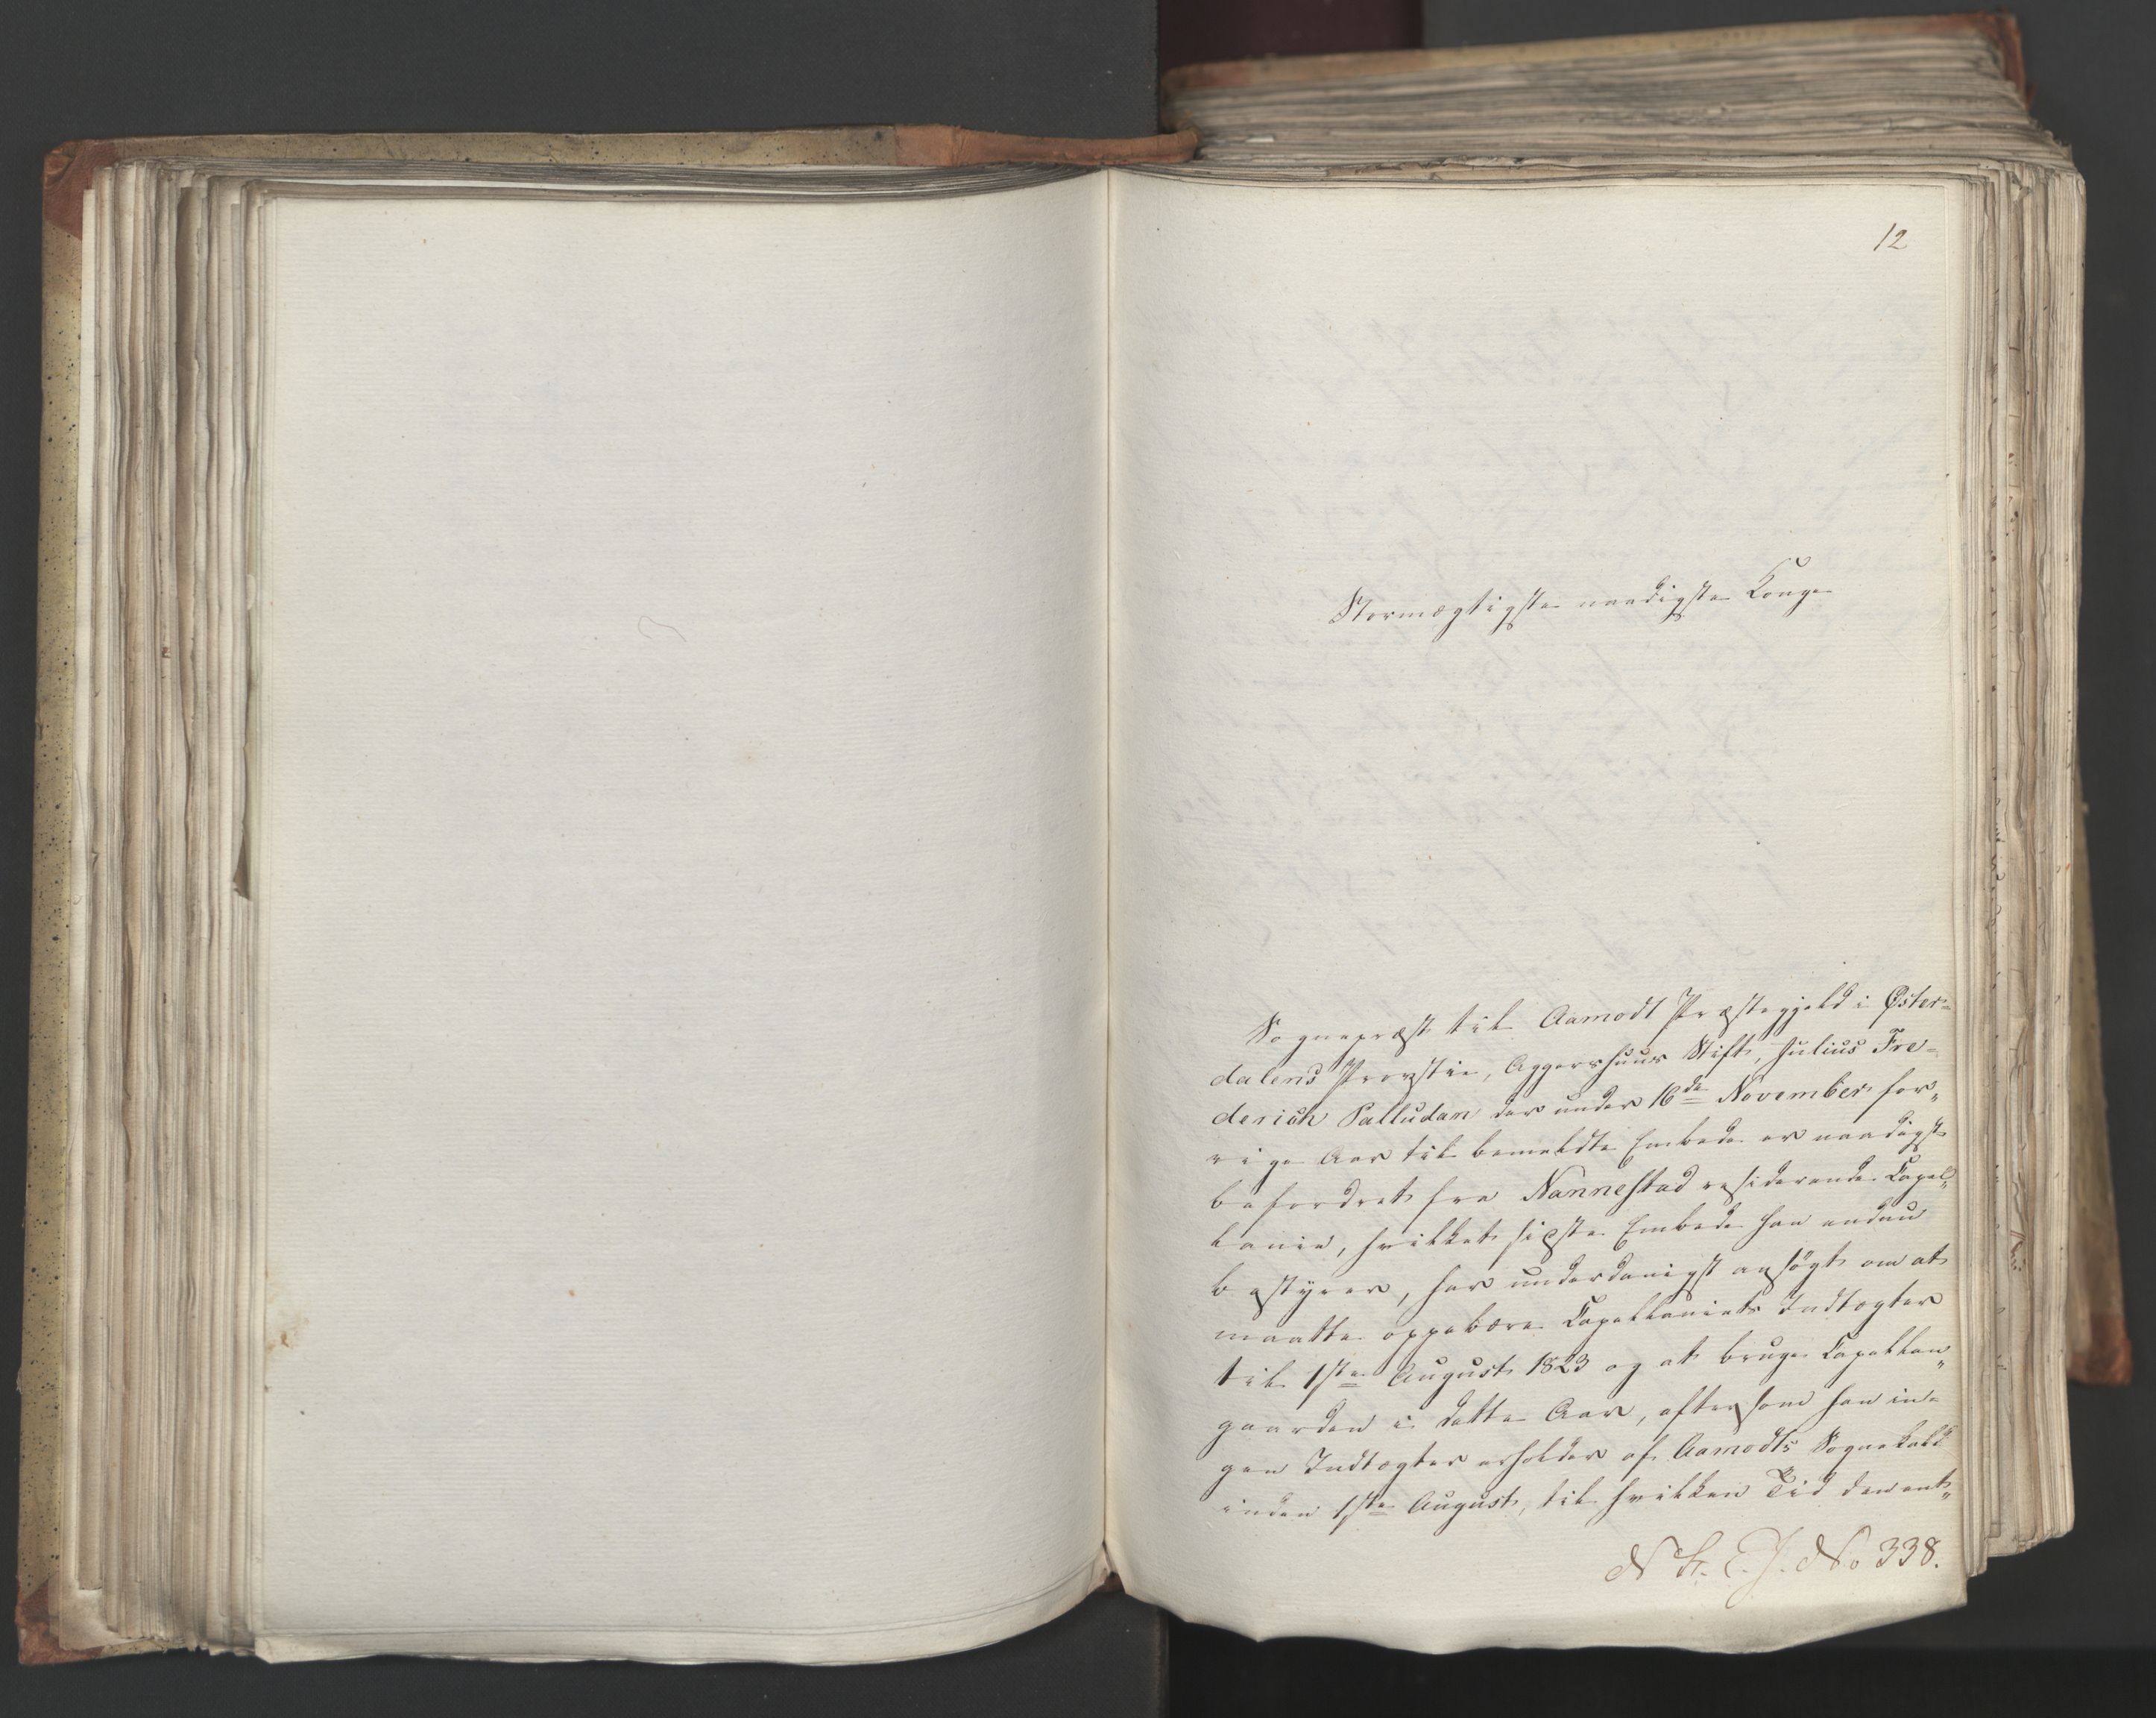 12
Stormægtigste naadigste Konge
Sognepræst til Aamodt Præstegjeld i Øster-
dalens Provstie, Aggershuus Stift, Julius Fre-
derich Palludan der under 16de November for„
rige Aar til bemeldte Embede er naadigst
befordret fra Nannestad residerende Capel„
lanie, hvilket sidste Embede han endnu
bestyrer, har underdanigst ansøgt om at
maatte oppebære Capellaniets Indtægter
til 1ste August 1823 og at bruge Capellan„
gaarden i dette Aar, eftersom han in-
gen Indtægter erholder af Aamodts Sognekald
inden 1ste August, til hvilken Tid den ent„
No 338.